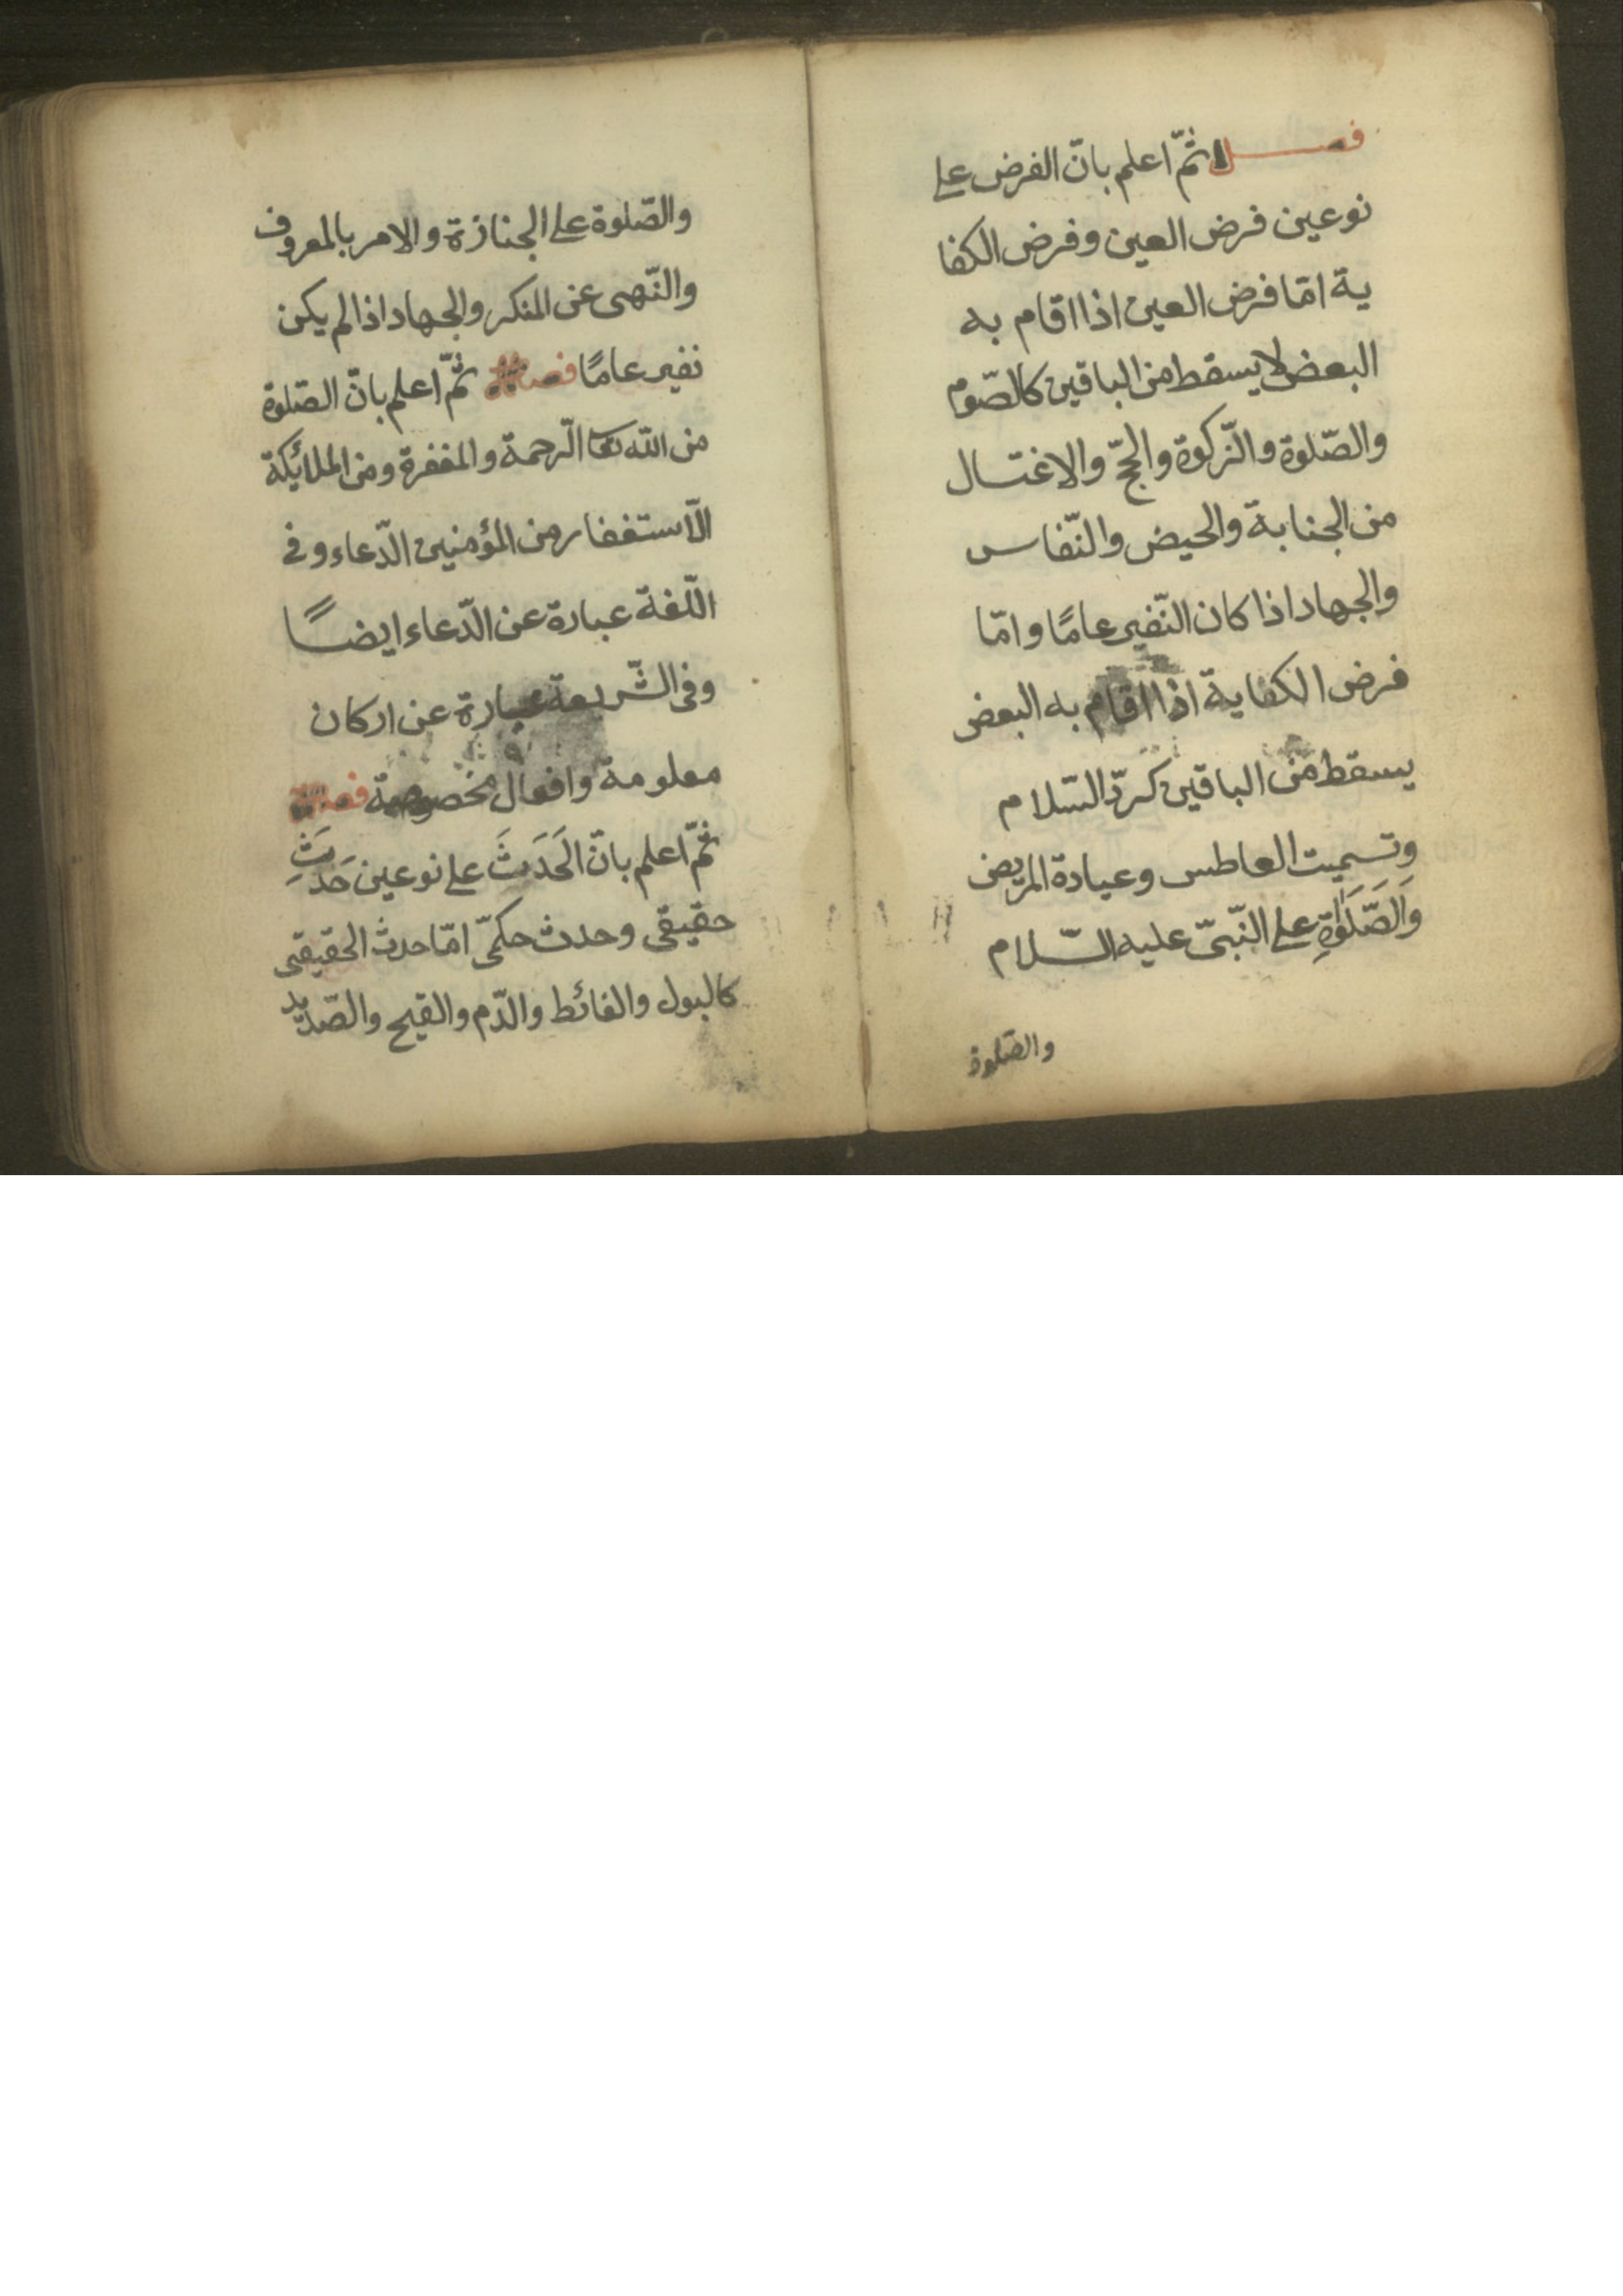 فصل ثمّ اعلم بانّ الفرض على
نوعين فرض العين وفرض الكفا
ية امّا فرض العين اذا اقام به
البعض لا يسقط من الباقين كالصّوم
والصّلوة والزّكوة والحجّ والاغتسال
من الجنابة والحيض والنّفاس
والجهاد اذا كان النّفير عامًا وامّا
فرض الكفاية اذا اقام به البعض
يسقط من الباقين كردّ السّلام
وتسميت العاطس وعيادة المريض
وَالصَّلَوٰةِ على النّبىّ عليه السّلام
والصّلوة
والصّلوة على الجنازة والامر بالمعروف
والنّهى عن المنكر والجهاد اذا لم يكن
نفير عامًا فصل ثمّ اعلم بانّ الصّلوة
من الله تعا الرّحمة والمغفرة ومن الملائكة
الّاستغفار من المؤمنين الدّعاء وفى
اللّغة عبارة عن الدّعاء ايضًا
وفى الشّريعة عبارة عن اركان
معلومة وافعال مخصوصة فصل
ثمّ اعلم بانّ الحَدَثَ على نوعين حَدَثِ
حقيقى وحدث حكمىّ امّا حدث الحقيقى
كالبول والغائط والدّم والقيح والصّديد